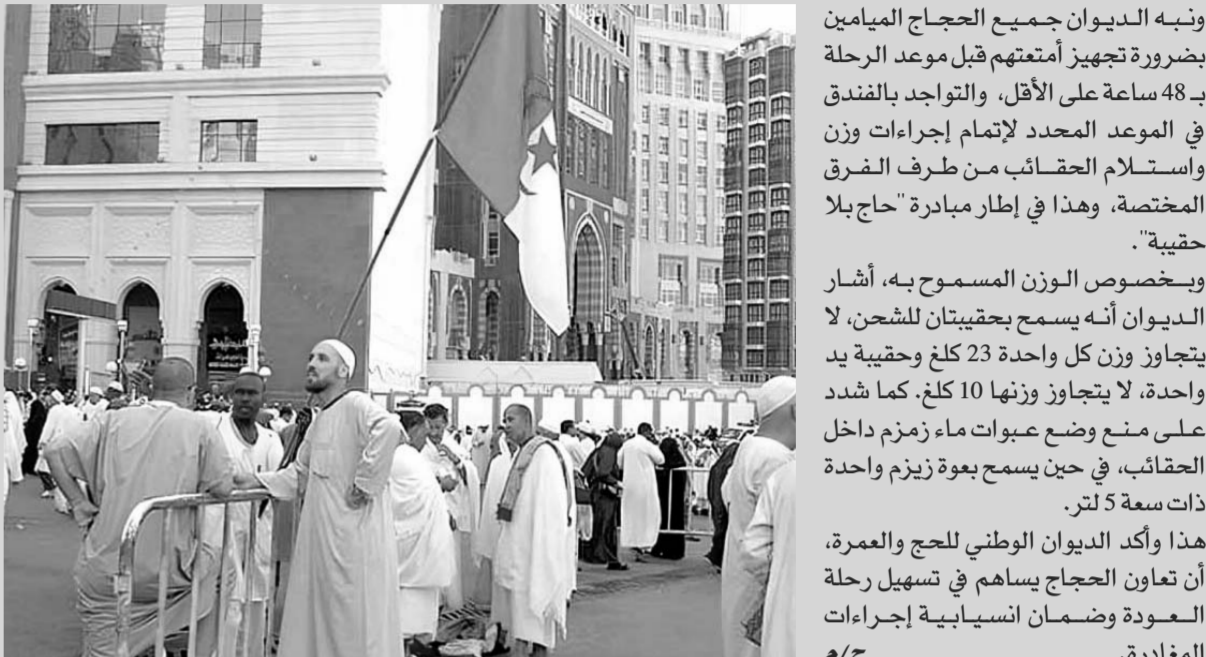 ونبه الديوان جميع الحجاج الميامين
بضرورة تجهيز أمتعتهم قبل موعد الرحلة
بـ 48 ساعة على الأقل، والتواجد بالفندق
في الموعد المحدد لإتمام إجراءات وزن
واستلام الحقائب من طرف الفرق
المختصة، وهذا في إطار مبادرة "حاج بلا
حقيبة".
وبخصوص الوزن المسموح به، أشار
الديوان أنه يسمح بحقيبتان للشحن، لا
يتجاوز وزن كل واحدة 23 كلغ وحقيبة يد
واحدة، لا يتجاوز وزنها 10 كلغ. كما شدد
على منع وضع عبوات ماء زمزم داخل
الحقائب، في حين يسمح بعوة زيزم واحدة
ذات سعة 5 لتر.
هذا وأكد الديوان الوطني للحج والعمرة،
أن تعاون الحجاج يساهم في تسهيل رحلة
العودة وضمان انسيابية إجراءات
المغادرة. ح/م